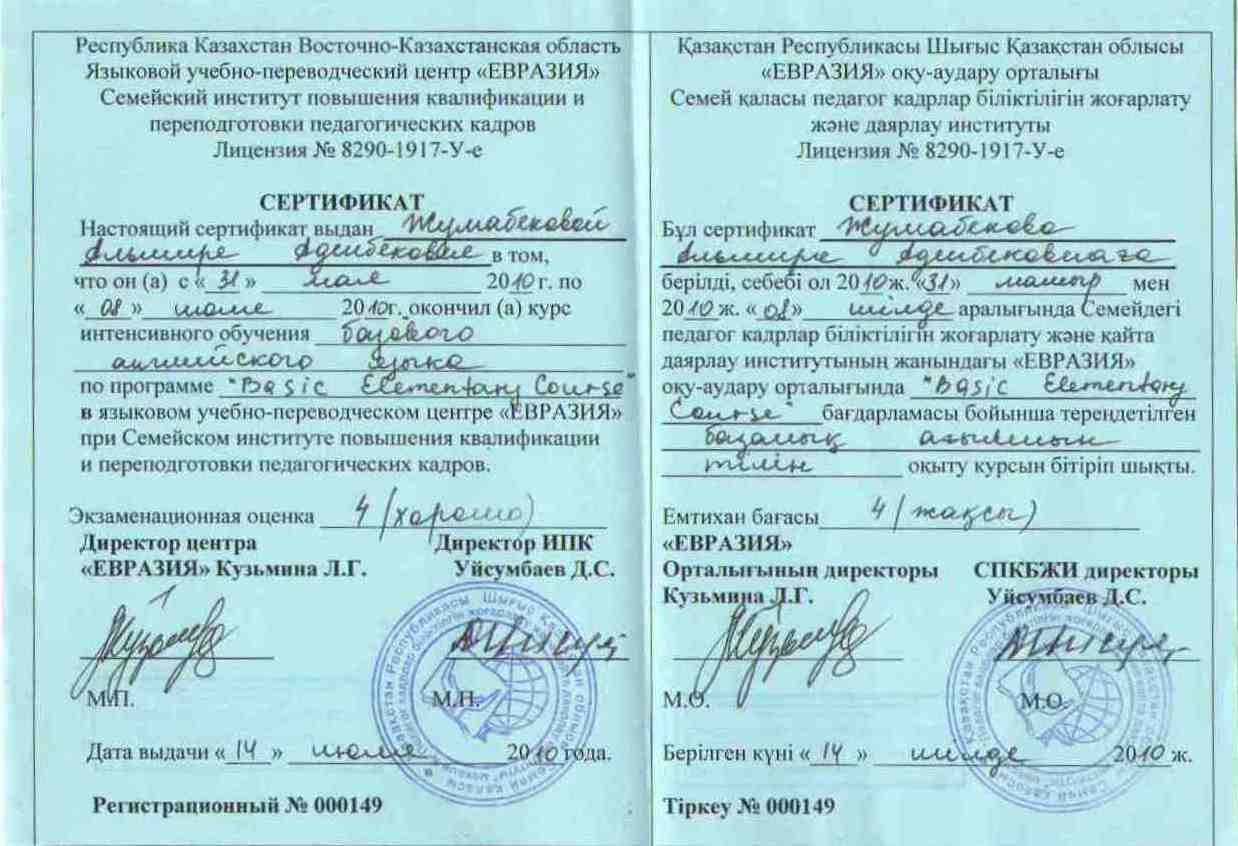 Республика Казахстан Восточно-Казахстанская область
Языковой учебно-переводческий центр «ЕВРАЗИЯ»
Семейский институт повышения квалификации и
переподготовки педагогических кадров
Лицензия № 8290-1917-У-е
СЕРТИФИКАТ
Настоящий сертификат выдан Жумабековой
Альмире Адембековне в том,
что он (а) с « 31 » мая 2010 г. по
« 08 » июля 2010г. окончил (а) курс
интенсивного обучения базового
английского языка
по программе "Basic Elementary Course"
в языковом учебно-переводческом центре «ЕВРАЗИЯ»
при Семейском институте повышения квалификации
и переподготовки педагогических кадров.
Экзаменационная оценка 4 (хорошо)
Директор центра Директор ИПК
«ЕВРАЗИЯ» Кузьмина Л.Г. Уйсумбаев Д.С.
М.П. М.П.
Дата выдачи « 14 » июля 2010 года.
Регистрационный № 000149
Қазақстан Республикасы Шығыс Қазақстан облысы
«ЕВРАЗИЯ» оқу-аудару орталығы
Семей қаласы педагог кадрлар біліктілігін жоғарлату
және даярлау институты
Лицензия № 8290-1917-У-е
СЕРТИФИКАТ
Бұл сертификат Жумабекова
Альмире Адембековнаға
берілді, себебі ол 2010 ж. «31» мамыр мен
2010 ж. «08» шілде аралығында Семейдегі
педагог кадрлар біліктілігін жоғарлату және қайта
даярлау институтының жанындағы «ЕВРАЗИЯ»
оқу-аудару орталығында "Basic Elementary
Course" бағдарламасы бойынша тереңдетілген
базалық ағылшын
тілін оқыту курсын бітіріп шықты.
Емтихан бағасы 4 (жақсы)
«ЕВРАЗИЯ»
Орталығының директоры СПКБЖИ директоры
Кузьмина Л.Г. Уйсумбаев Д.С.
М.О. М.О.
Берілген күні « 14 » шілде 2010 ж.
Тіркеу № 000149